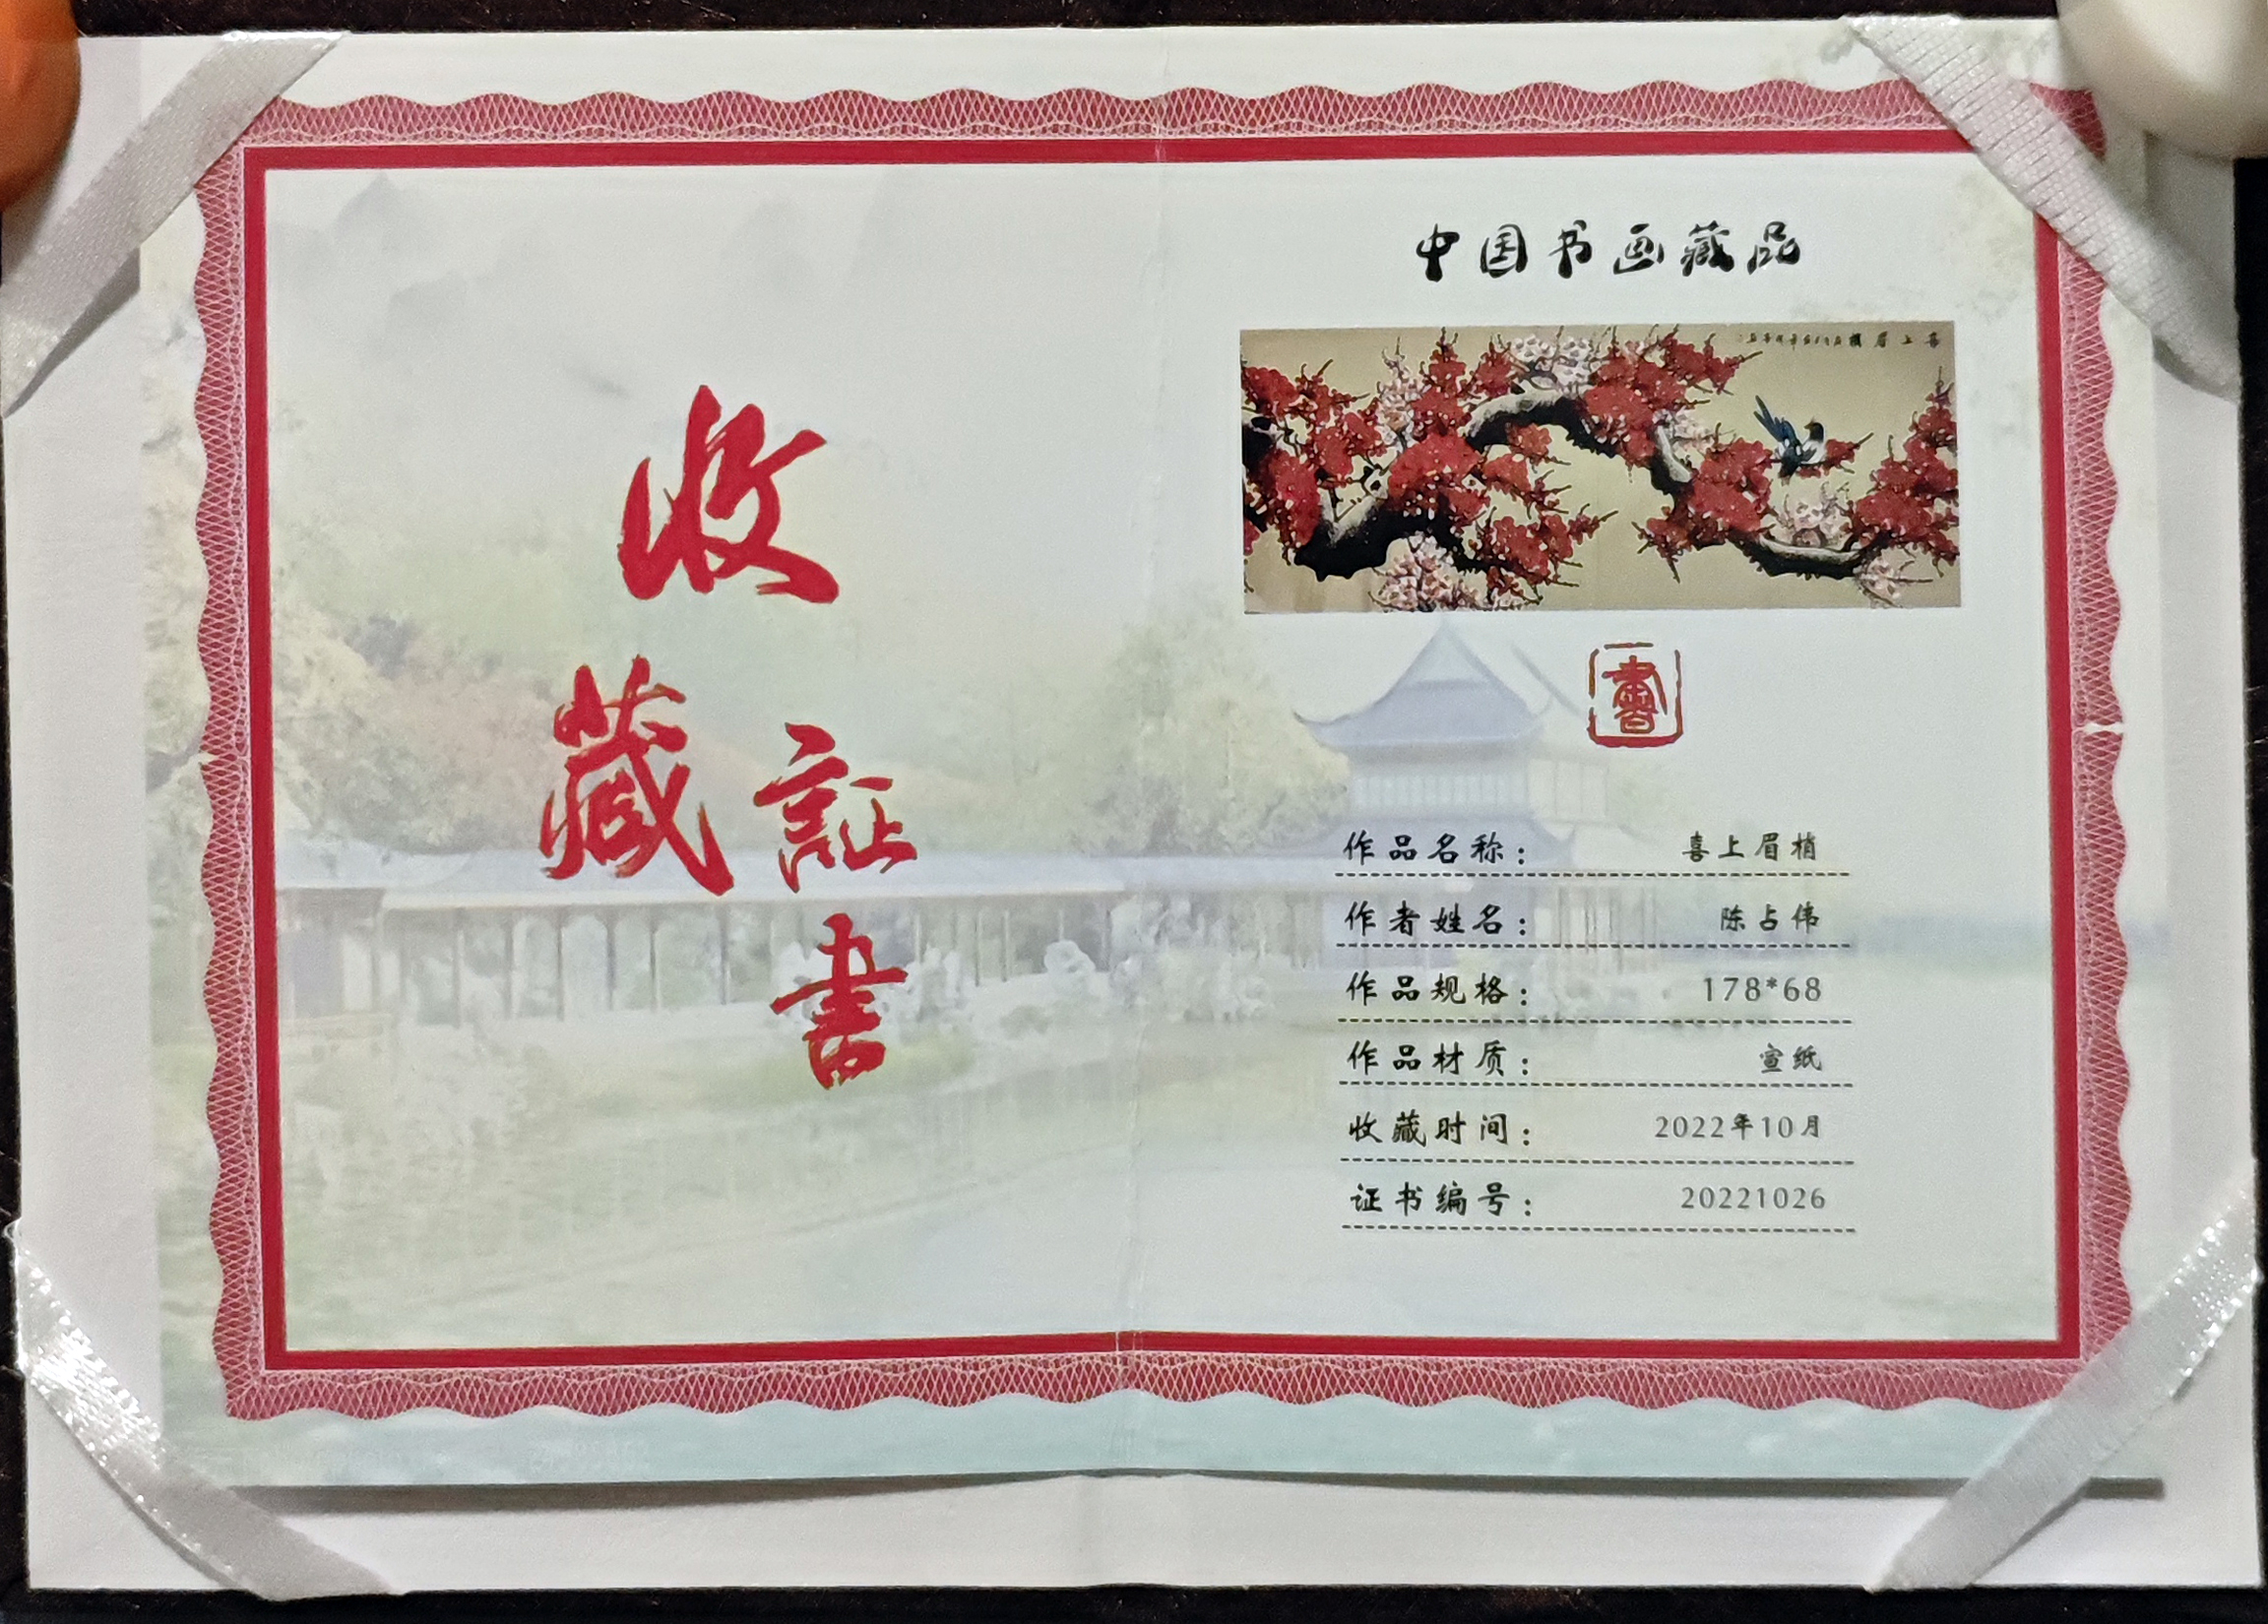 收藏
証書
中国书画藏品
喜上眉梢
書
作品名称： 喜上眉梢
作者姓名： 陈占伟
作品规格： 178*68
作品材质： 宣纸
收藏时间： 2022年10月
证书编号： 20221026